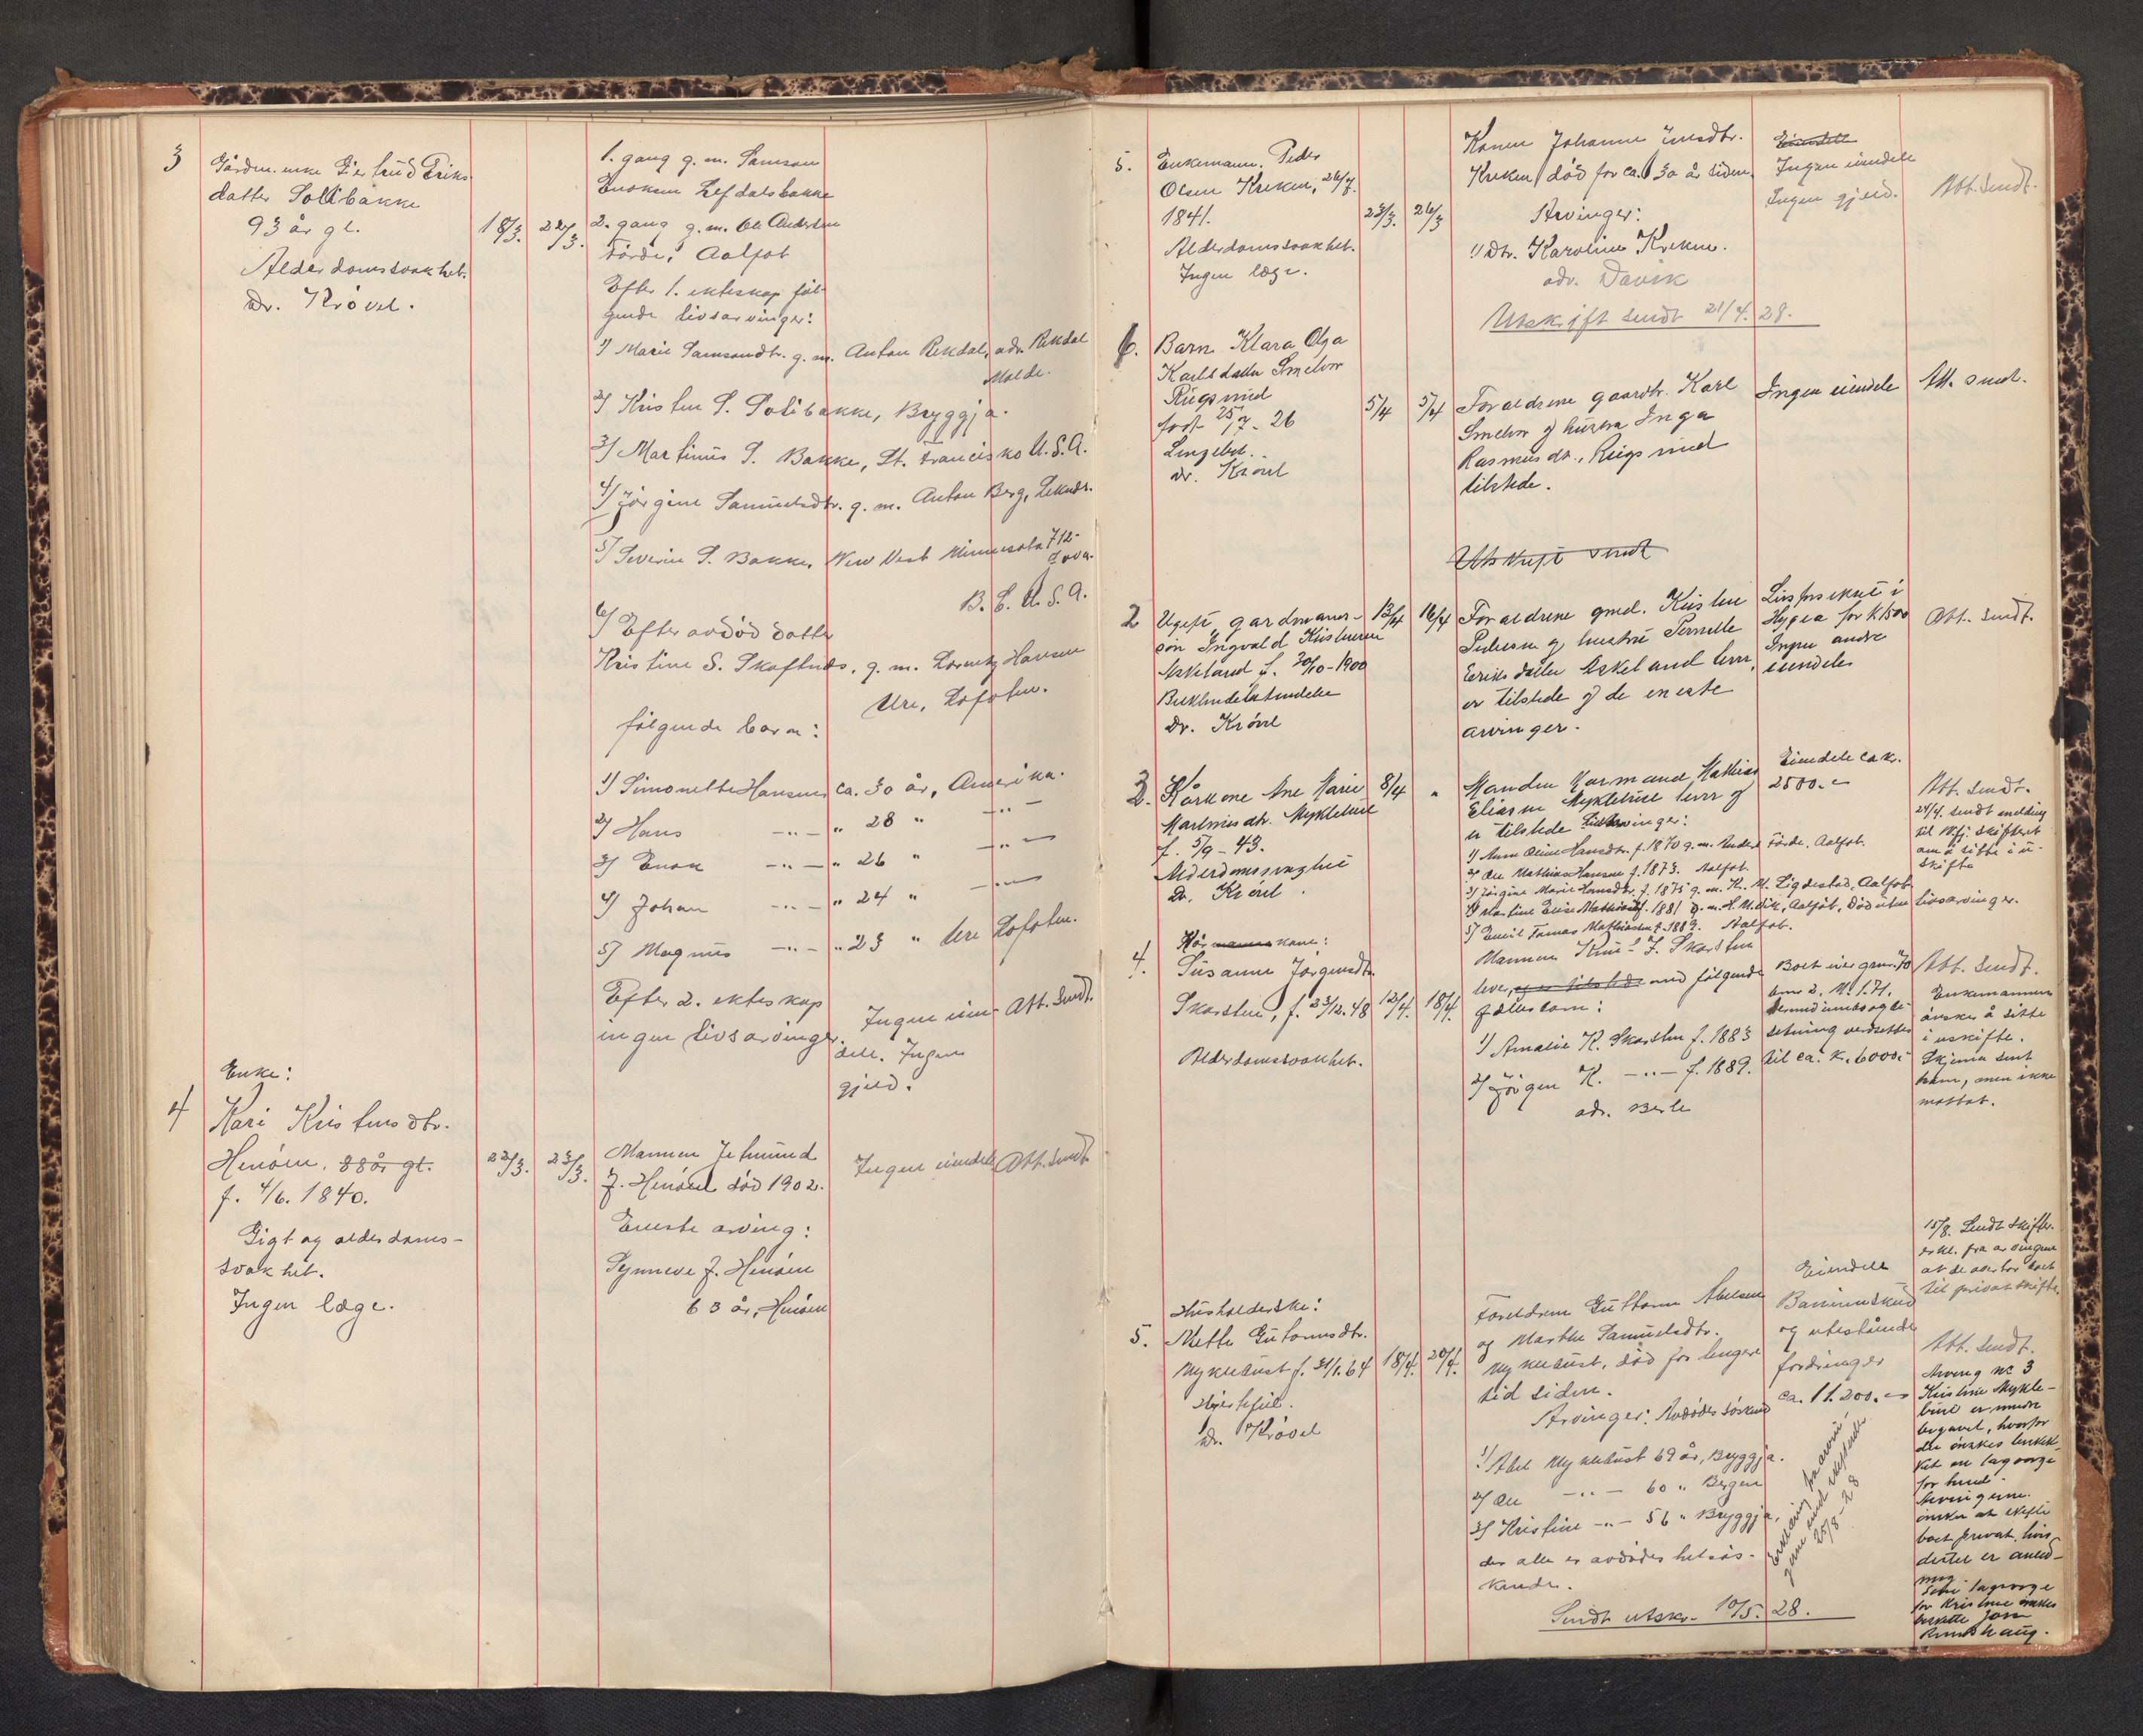 3
Gårdm. enke Giertrud Eriks-
datter Sollibakke
93 år gl.
Alderdomssvakhet.
Dr. Krøvel.
18/3.
22/3.
1. gang g. m. Samson
2. gang g. m. Ole Andersen
Förde, Aalfot
Efter 1. ekteskap föl-
gende livsarvinger:
1) Marie Samsondtr. g. m. Anton Rekdal, adr. Rekdal
Molde.
2) Kristen S. Solibakke, Bryggja.
3) Martinus S. Bakke, St. Francisko U. S. A.
4) Jörgine Samuelsdtr. g. m. Anton Berg,
5) Severin S. Bakke, New Vest Minnesota 712-
B. C. U. S. A.
6) Efter avdöd datter
Kristine S. g. m. Hansen
Ure, Lofoten.
fölgende barn:
1) Simonette Hansen ca. 30 år, Amerika.
2) Hans —"— " 28 " —"—
3) Enok —"— " 26 " —"—
4) Johan —"— " 24 " —"—
5) Magnus —"— " 23 " Ure Lofoten.
Efter 2. ekteskap
ingen livsarvinger.
Ingen eien-
dele. Ingen
gjeld.
Att. Sendt.
Enke:
4
Kari Kristensdtr.
Henöen. 88 år gl.
f. 4/6. 1840.
Gigt og alderdoms-
svakhet.
Ingen læge.
22/3.
23/3.
Mannen Jetmund
J. Henöen död 1902.
Eneste arving:
Synneve J. Henöen
63 år, Henöen
Ingen eiendele
Att. Sendt
5.
Enkemann. Peder
Olsen Kreken, 26/7.
1841.
Alderdomssvakhet.
Ingen læge.
23/3.
26/3
Konen Johanne
Kreken död for ca. 30 år siden.
Arvinger:
1) Dtr. Karoline Kreken.
adr. Davik
Utskrift sendt 21/4. 28.
Eiendele
Ingen eiendele
Ingen gjeld.
Att. Sendt.
6.
Barn Klara Olga
Karlsdatter
født 25/7 - 26
dr. Krövel
5/4
5/4
Foraeldrene gaardbr. Karl
og hustru Inga
Rasmusdr.,
tilstede.
Ingen eiendele
Att. sendt.
Utskrift sendt
2
Ugift gardmanns-
sön Ingvald Kristensen
Askeland f. 30/10 - 1900
Dr. Krövel
13/4
16/4
Foraeldrene gmd. Kristen
Pedersen og hustru Pernille
Eriksdatter Askeland lever,
er tilstede og de eneste
arvinger.
Livsforsikret i
Hygea for kr 1500
Ingen andre
eiendeler
Att. Sendt.
3.
Kårkone Ane Marie
Martinusdtr. Myklebust
f. 5/9 - 43.
Dr. Krövel.
8/4
"
Manden Karmand Mathias
Eliassen Myklebust lever og
er tilstede Livsarvinger:
1) Anne Oline Hansdtr. f. 1870 g. m. Anders Förde, Aalfot.
2) Ole Mathias Hansen f. 1873. Aalfot.
3) Jörgine Marie Hansdtr. f. 1875 g. m. K. M. Aalfot
4) Martine Elise f. 1881 g. m. Aalfot, död uten livsarvinger.
5) Emil Tomas Mathiassen f. 1889. Aalfot.
Eiendele ca kr.
2500.-
Att. Sendt.
24/4. sendt melding
til skifteret
om å sitte i u-
skifte
4.
Kårmanns kone:
Susanne Jörgensdtr.
Skorsten, f. 23/12. 48
Alderdomssvakhet.
12/4.
18/4.
Mannen Knut J. Skorsten
lever, og er tilstede med følgende
fællesbarn:
1) Amalie K. Skorsten f. 1883
2) Jörgen K. —"— f. 1889.
adr. Berle
Boet eier grn. 70
bnr 2.
til ca. k. 6000.-
Att. Sendt.
Enkemannen
önsker å sitte
i uskifte.
Skjema sent
ham, men ikke
mottat.
Husholderske:
5.
Mette Gutormsdtr.
Myklebust f. 31/1. 64
Hjertefeil.
Dr. Krövel
18/4.
20/4.
Foreldrene Guttorm Abelsen
og Marthe Samuelsdtr.
Myklebust, död for lengere
tid siden.
Arvinger: Avdödes söskend
1) Abel Myklebust 69 år, Bryggja.
2) Ole —"— 60 " Bergen
3) Kristine —"— 56 " Bryggja,
der alle er avdödes helsös-
kende.
Sendt utskr. 10/5. 28.
Eiendele
Bankinnskud
og utestående
fordringer
ca. 11.200.-
Erklæring fra arvin-
gerne
25/8 - 28
15/8. Sendt skifte-
erkl. fra arvingene
at de overtar boet
til privat skifte.
Att. Sendt.
Arving nr 3
Kristine Mykle-
bust er mindre
begavet, hvorfor
der önskes beskik-
ket en lagverge
for hende.
Arvingerne
önsker at skifte
boet privat, hvis
dertil er anled-
ning.
Som lagverge
for Kristine önskes
beskikket